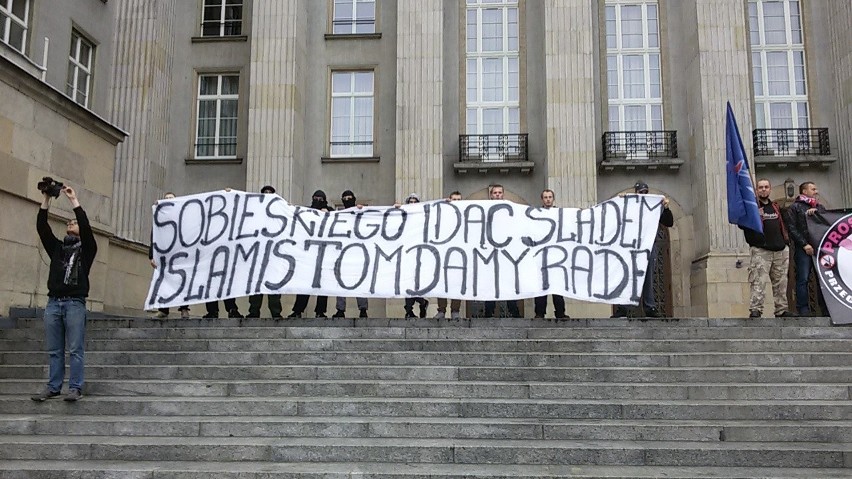 SOBIESKIEGO IDĄC ŚLADEM
ISLAMISTOM DAMY RADĘ